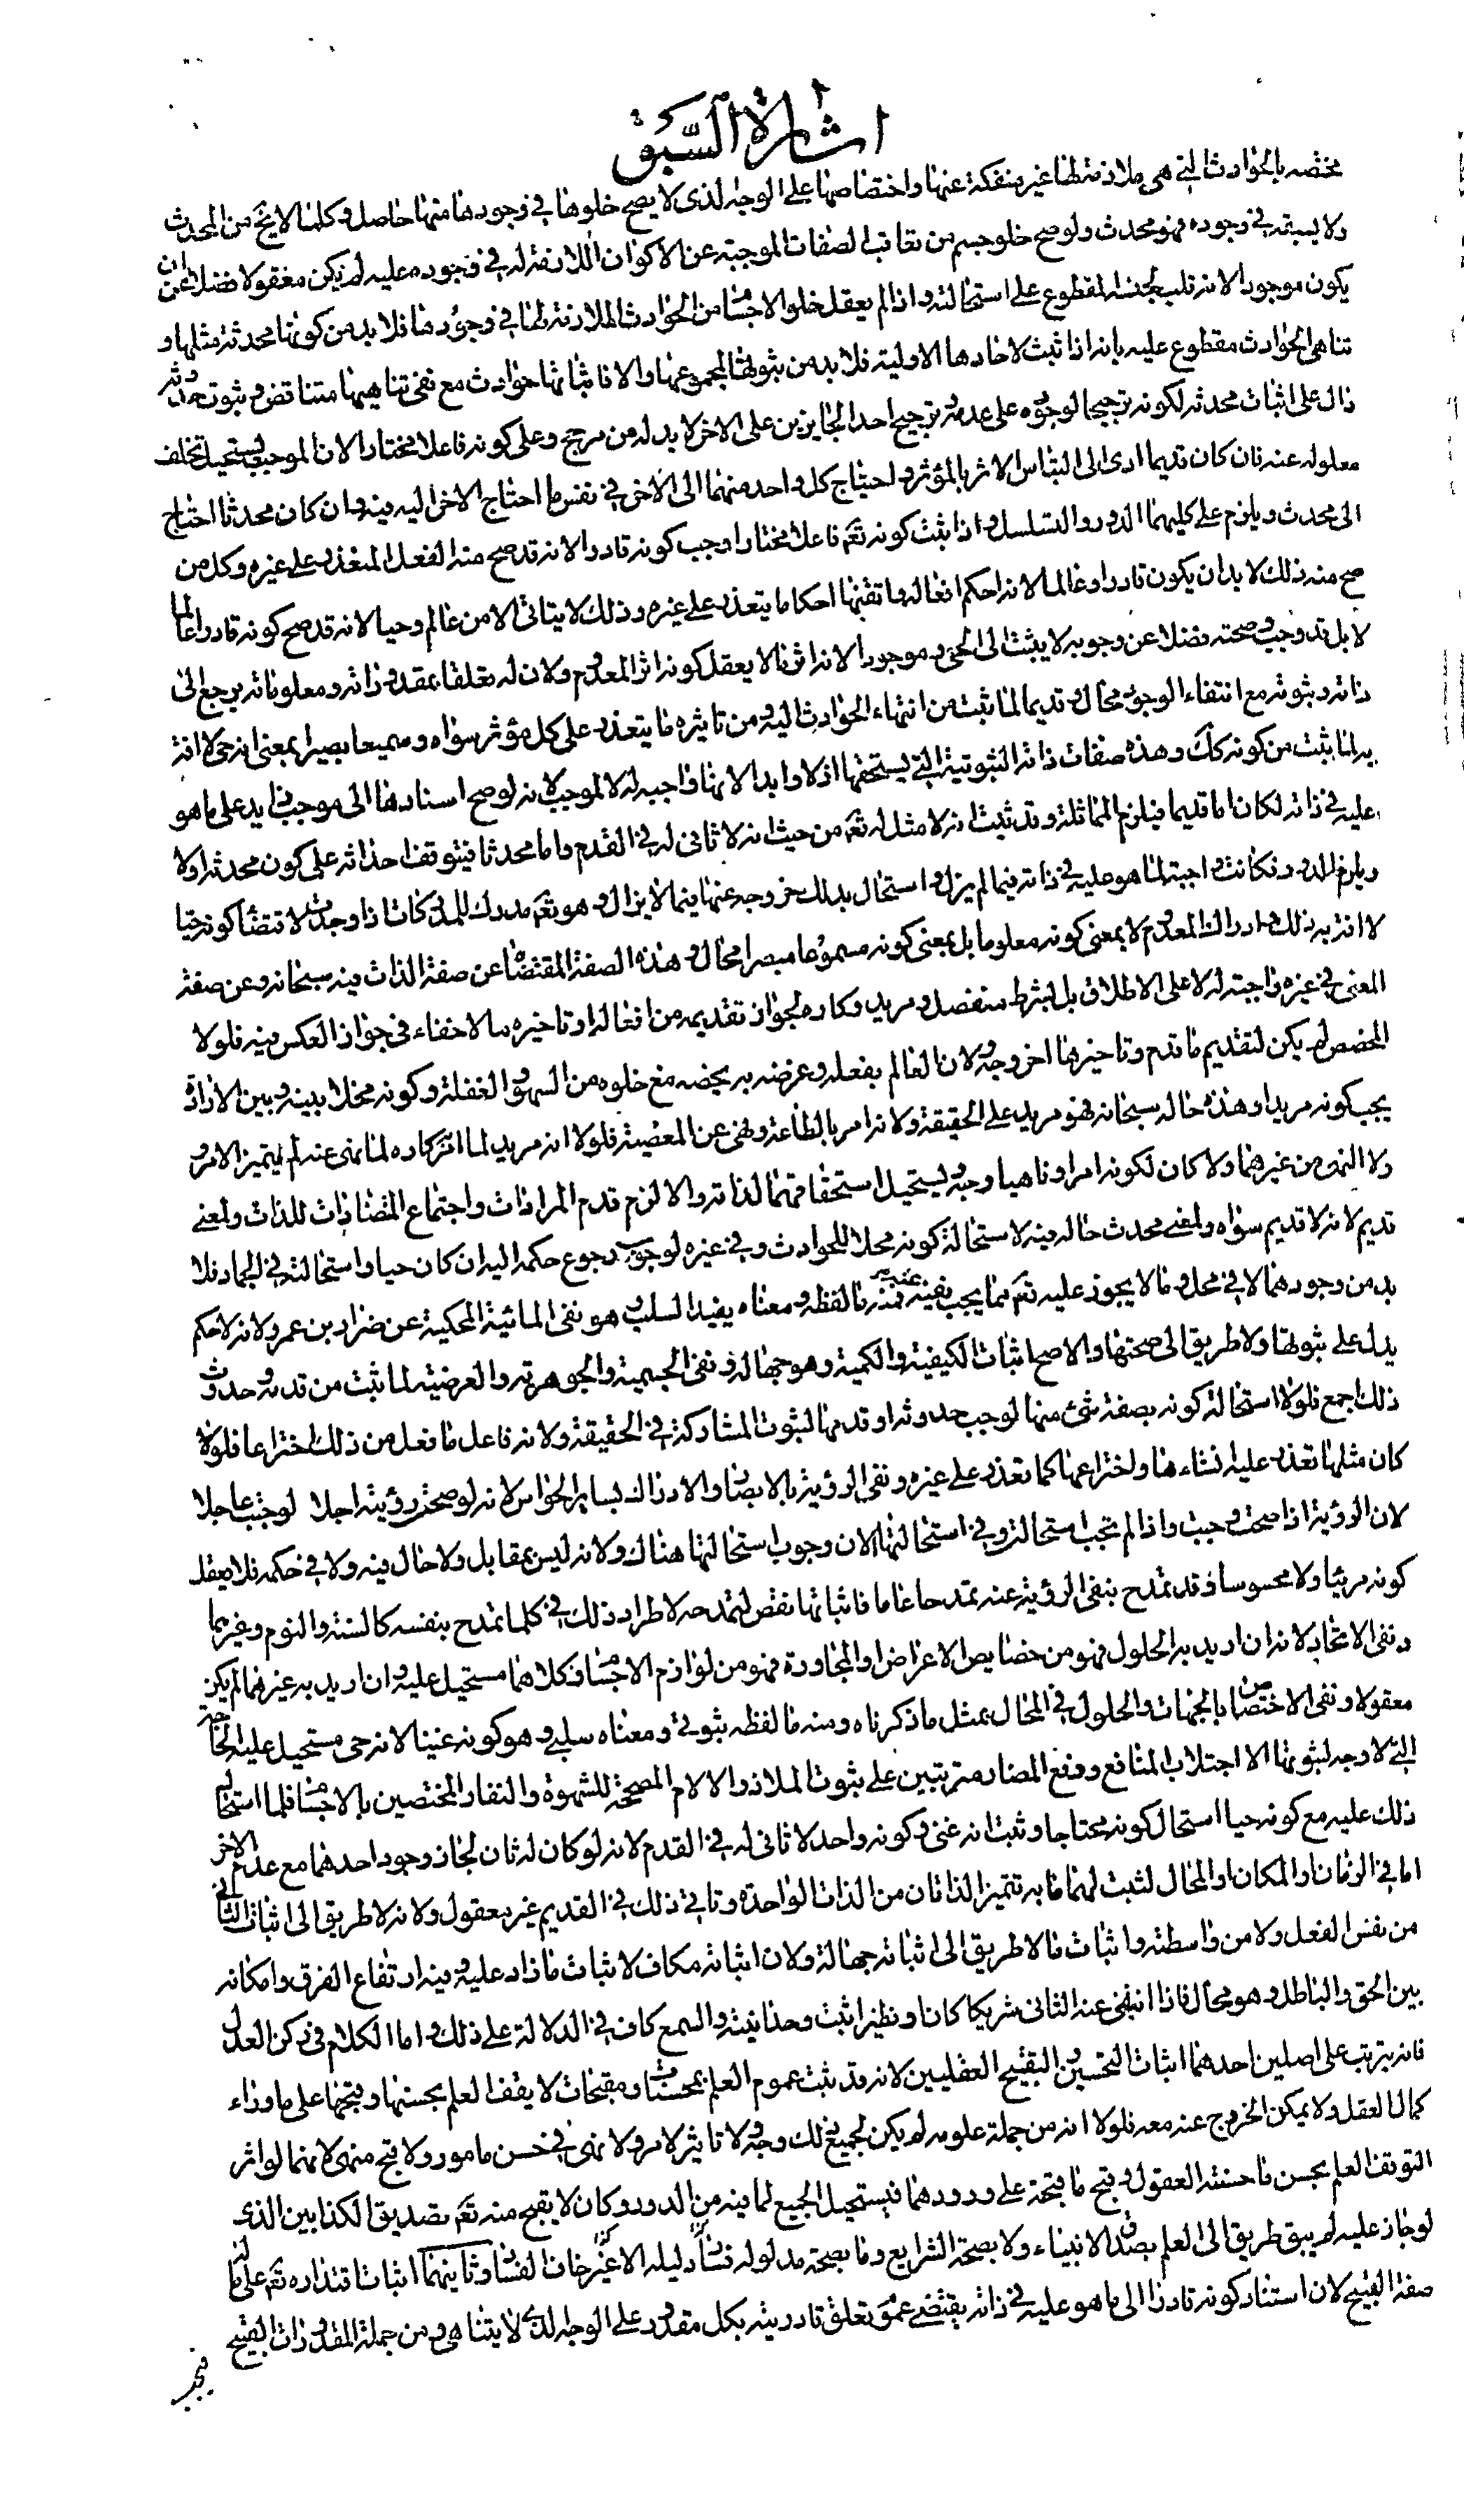 اشارة السبق
مختصه بالحوادث التى هى ملازمة لها غير منفكة عنها واختصاصها على الوجه الذى لا يصح خلوها فى وجودها منها حاصل وكلما لا يخ من المحدث
ولا يسبقه فى وجوده فهو محدث ولو صح خلو جسم من تعاقب الصفات الموجبة عن الاكوان اللازمة له فى وجوده عليه لم يكن معقولا فضلا عن ان
يكون موجودا لانه قلب لجنسه المقطوع على استحالته واذا لم يعقل خلو الاجسام من الحوادث الملازمة لها فى وجودها فلا بد من كونها محدثة مثلها و
تناهى الحوادث مقطوع عليه بانه اذا ثبت لاحادها الاولية فلا بد من ثبوتها لمجموعها والا فاثباتها حوادث مع نفى تناهيها متناقض وثبوت حدوثه
دال على اثبات محدثه لكونه ترجيحا لوجوده على عدمه وترجيح احد الجايزين على الاخر لا بد له من مرجح وعلى كونه فاعلا مختارا لان الموجب يستحيل تخلف
معلوله عنه فان كان قديما ادى الى التباس الاثر بالمؤثر واحتياج كل واحد منهما الى الاخر فى نفس ما احتاج الاخر اليه فيه وان كان محدثا احتاج
الى محدث ويلزم على كليهما الدور والتسلسل واذا ثبت كونه تعم فاعلا مختارا وجب كونه قادرا لانه قد صح منه الفعل المتعذر على غيره وكل من
صح منه ذلك لا بد ان يكون قادرا وعالما لانه احكم افعاله واتقنها احكاما يتعذر على غيره وذلك لا يتاتى الا من عالم وحيا لانه قد صح كونه قادرا عالما
لا بل قد وجب وصحته فضلا عن وجوبه لا يثبت الى الحى وموجودا لانه اثر ما لا يعقل كونه اثرا لمعدوم ولان له تعلقا بمقدوراته ومعلوماته يرجع الى
ذاته وثبوته مع انتفاء الوجود محال وقديما لما ثبت من انتهاء الحوادث اليه ومن تاثيره ما يتعذر على كل مؤثر سواه وسميعا بصيرا بمعنى انه حى لا افة
به لما ثبت من كونه كك وهذه صفات ذاته الثبوتية التى يستحقها ازلا وابدا لانها واجبه له لا لموجب لانه لو صح اسنادها الى موجب زايد على ما هو
عليه فى ذاته لكان اما قديما فيلزم المماثلة وقد ثبت انه لا مثل له تعم من حيث انه لا ثانى له فى القدم واما محدثا فيتوقف احداثه على كون محدثه اولا
ويلزم الدور فكانت واجبة لما هو عليه فى ذاته فيما لم يزل واستحال بذلك خروجه عنها فيما لا يزال وهو تعم مدرك للمدركات اذا وجدت لاقتضاء كونه حيا
لا افة به ذلك وادراك المعدوم لا بمعنى كونه معلوما بل بمعنى كونه مسموعا مبصرا محال وهذه الصفة المقتضاة عن صفة الذات فيه سبحانه وعن صفة
المعنى فى غيره واجبة له لا على الاطلاق بل بشرط منفصل ومريد وكاره لجواز تقديمه من افعاله او تاخيره ما لا خفاء فى جواز العكس فيه فلولا
المخصص لم يكن لتقديم ما قدم وتاخير ما اخر وجه ولان العالم بفعله وغرضه به يخصه مع خلوه من السهو والغفلة وكونه مخلا بينه وبين الارادة
يجب كونه مريدا وهذه حاله سبحانه فهو مريد على الحقيقة ولانه امر بالطاعة ونهى عن المعصية فلولا انه مريد لما امر كاره لما نهى عنه لم يتميز الامر و
ولا النهى من غيرهما ولا كان لكونه امرا وناهيا وجه ويستحيل استحقاقهما لذاته والا لزم قدم المرادات واجتماع المتضادات للذات ولمعنى
قديم لانه لا قديم سواه ولمعنى محدث حاله فيه لاستحالة كونه محلا للحوادث وفى غيره لوجوب رجوع حكمه اليه ان كان حيا واستحالته فى الجماد فلا
بد من وجودهما لا فى محل وما لا يجوز عليه تعم مما يجب نفيه عنه فمنه ما لفظه ومعناه يفيد السلب وهو نفى المائية المحكية عن ضرار بن عمرو لانه لا حكم
يدل على ثبوتها ولا طريق الى صحتها والا صح اثبات الكيفية والكمية وهو جهالة ونفى الجسمية والجوهرية والعرضية لما ثبت من قدمه وحدوث
ذلك اجمع فلولا استحالة كونه بصفة شئ منها لوجب حدوثه او قدمها لثبوت المشاركة فى الحقيقة ولانه فاعل ما فعل من ذلك اختراعا فلو
كان مثلها تعذر عليه انشاءها واختراعها كما تعذر على غيره ونفى الرؤية بالابصار والادراك بساير الحواس لانه لو صح رؤيته اجلا لوجب عاجلا
لان الرؤية اذا صحت وجبت واذا لم تجب استحالت وفى استحالتها الان وجوب استحالتها هناك ولانه ليس بمقابل ولا حال فيه ولا فى حكمه فلا يعقل
كونه مرئيا ولا محسوسا وقد تمدح بنفى الرؤية عنه تمدحا عاما فاثباتها نقض لتمدحه لاطراد ذلك فى كلما تمدح بنفسه كالسنة والنوم وغيرهما
ونفى الاتحاد لانه ان اريد به الحلول فهو من خصايص الاعراض او المجاورة فهو من لوازم الاجسام وكلاهما مستحيل عليه وان اريد به غيرهما لم يكن
معقولا ونفى الاختصاص بالجهات والحلول فى المحال بمثل ما ذكرناه ومنه ما لفظه ثبوتى ومعناه سلبى وهو كونه غنيا لانه حى مستحيل عليه الحاجة
التى لا وجه لثبوتها الا اجتلاب المنافع ودفع المضار مترتبين على ثبوت الملاذ والالام المصححة للشهوة والنفار المختصين بالاجسام فلما استحال
ذلك عليه مع كونه حيا استحال كونه محتاجا وثبت انه غنى وكونه واحد لا ثانى له فى القدم لانه لو كان له ثان لجاز وجود احدهما مع عدم الاخر
اما فى الزمان او المكان او المحال لثبت لهما ما به تتميز الذاتان من الذات الواحدة وتاتى ذلك فى القديم غير معقول ولانه لا طريق الى اثبات الثانى
من نفس الفعل ولا من واسطته واثبات ما لا طريق الى اثباته جهالة ولان اثباته مكاف لاثبات ما زاد عليه وفيه ارتفاع الفرق وامكانه
بين الحق والباطل وهو محال فاذا انتفى عنه الثانى شريكا كان او نظيرا ثبت وحدانيته والسمع كاف فى الدلالة على ذلك واما الكلام فى ركن العدل
فانه يترتب على اصلين احدهما اثبات التحسين والتقبيح العقليين لانه قد ثبت عموم العلم بمحسنات ومقبحات لا يقف العلم بحسنها وقبحها على ما وراء
كمال العقل ولا يمكن الخروج عنه معه فلولا انه من جملة علومه لم يكن لجميع ذلك وجه ولا تاثير لامر ولا نهى فى حسن مامور ولا قبح منهى لانهما لو اثر
لتوقف العلم بحسن ما حسنته العقول وقبح ما قبحته على ورودهما فيستحيل الجميع لما فيه من الدور وكان لا يقبح منه تعم تصديق الكذابين الذى
لو جاز عليه لم يبق طريق الى العلم بصدق الانبياء ولا بصحة الشرايع وما بصحة مدلوله فساد دليله الا غير خاف الفساد وثانيهما اثبات اقتداره تعم على
صفة القبيح لان استناد كونه قادرا الى ما هو عليه فى ذاته يقتضى عموم تعلق قادريته بكل مقدور على الوجه الذى لا يتناهى ومن جملة المقدورات القبيح
فيجب